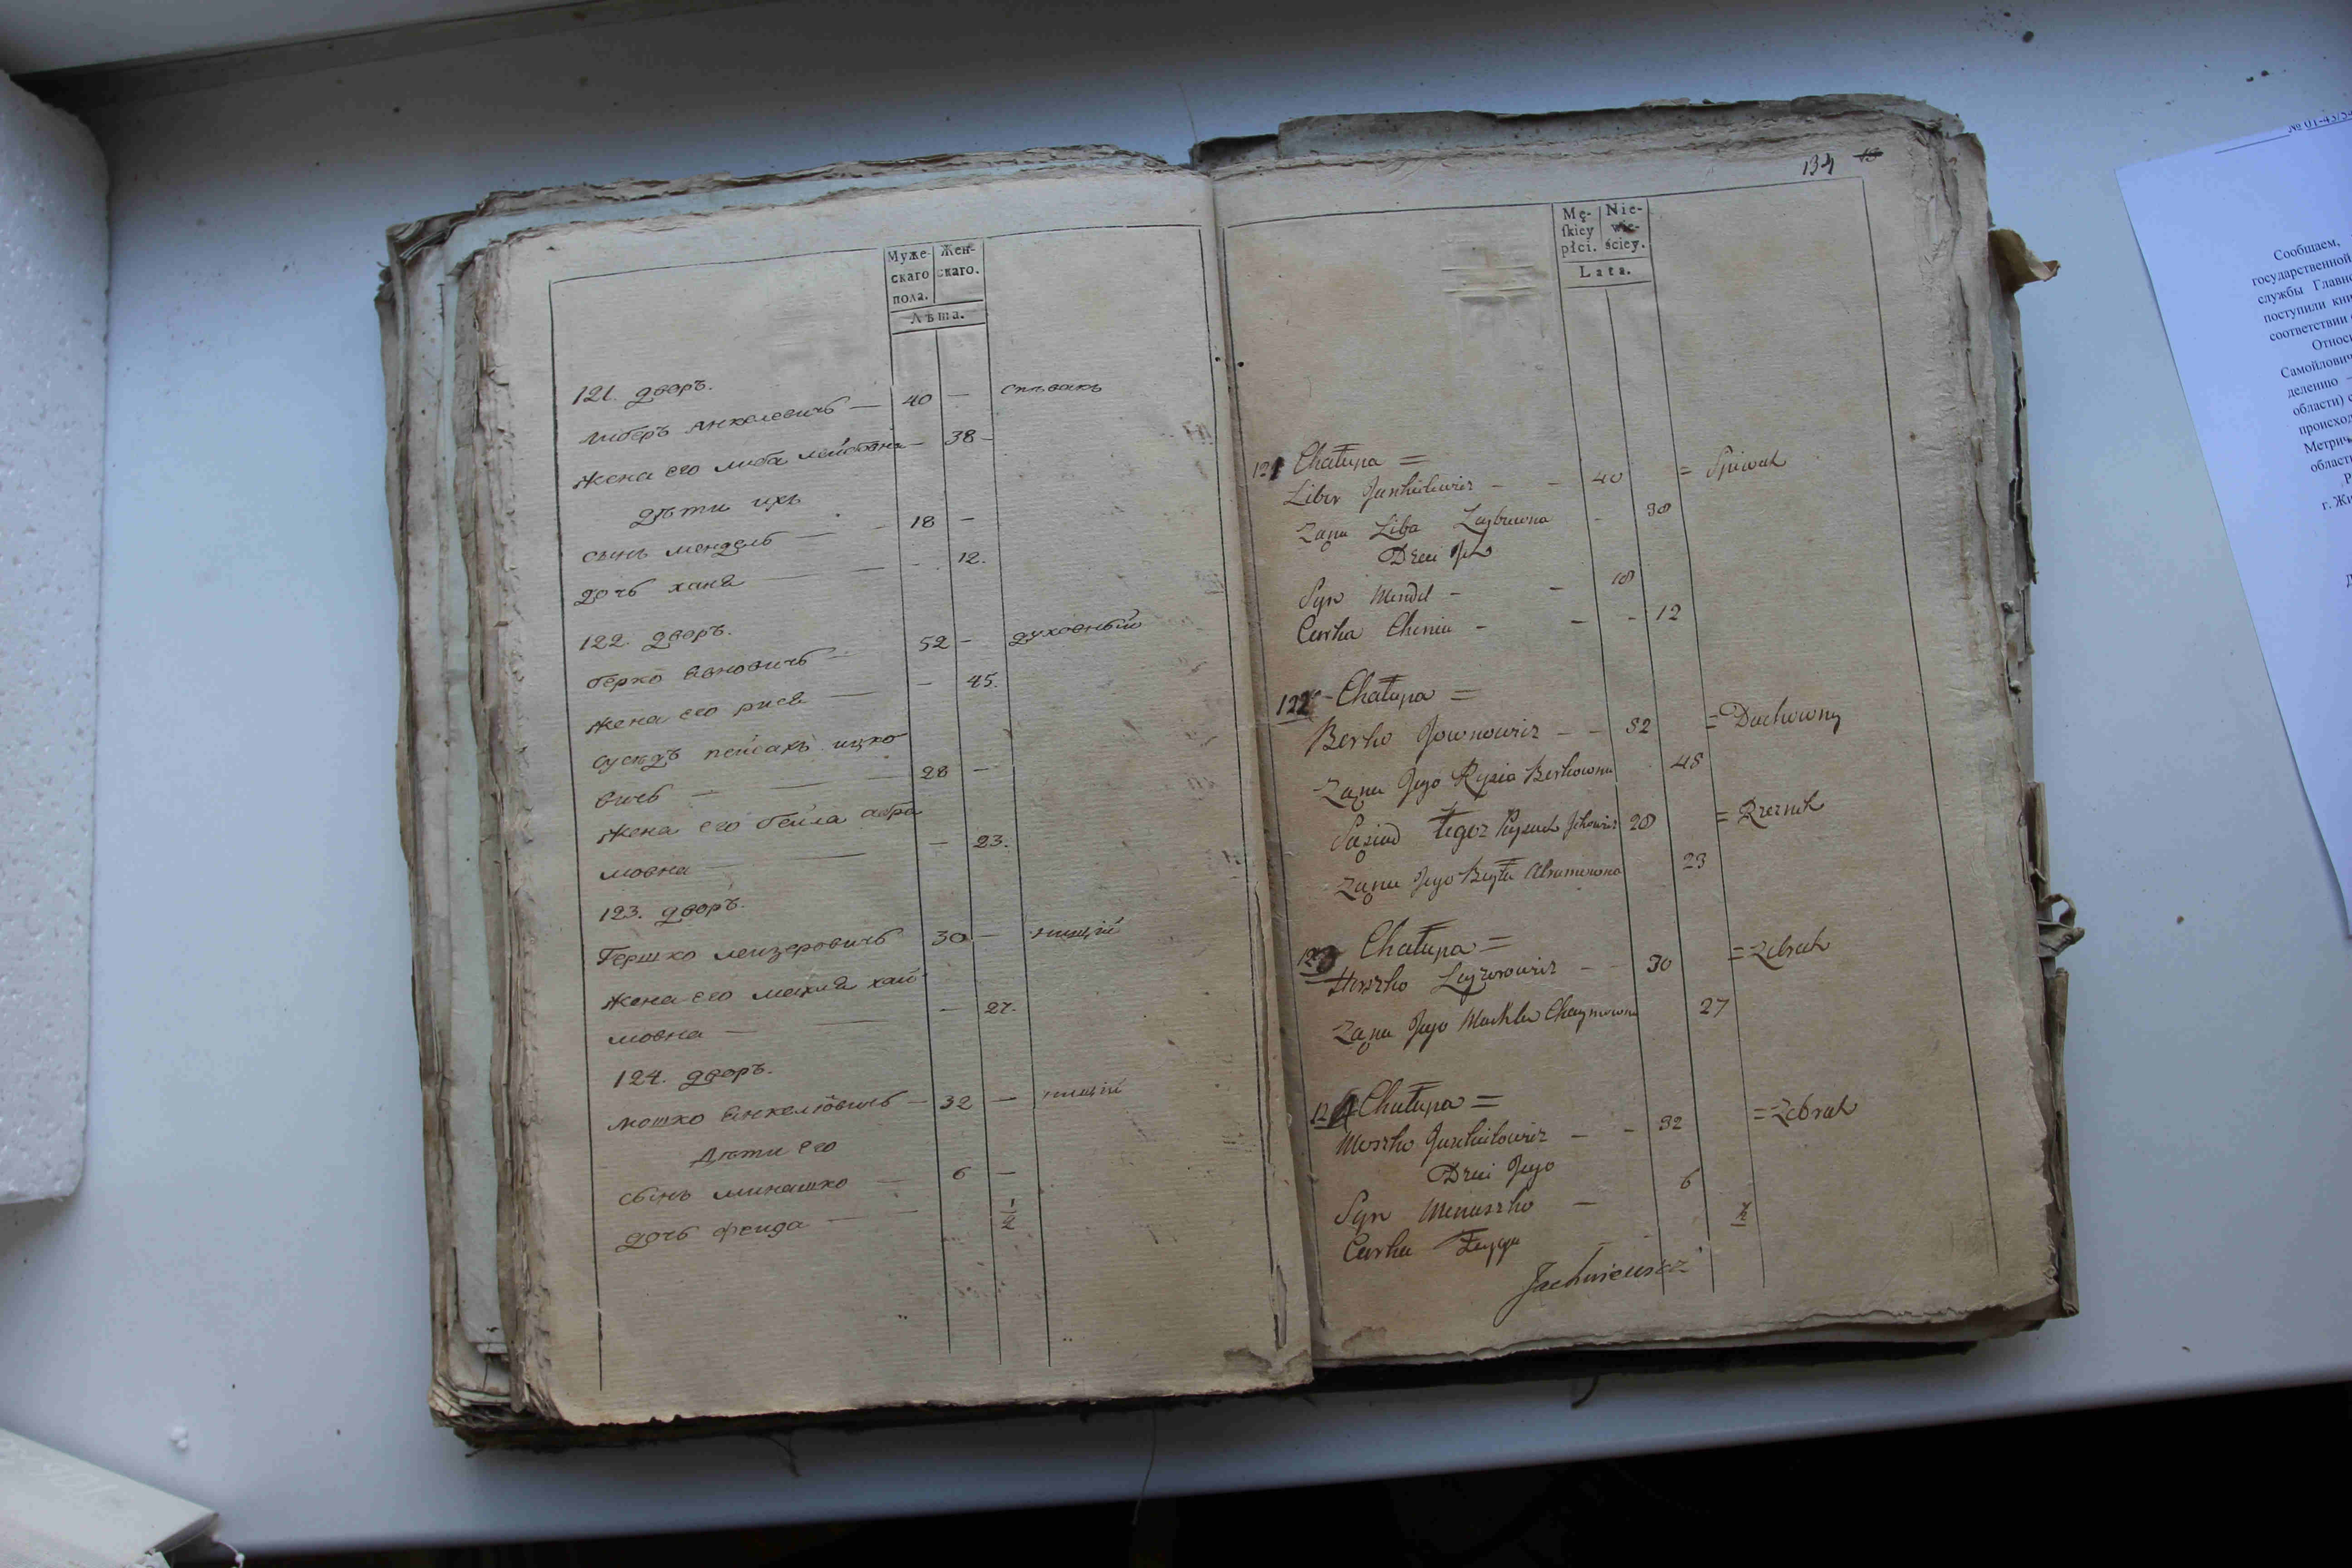 Муже-
скаго
пола.
Жен-
скаго.
Лѣта.
121. дворъ.
Либеръ Янкелевичъ — 40 — спѣвакъ
Жена его Либа Лейбовна — 38 —
Дѣти ихъ
сынъ Мендель — — 18 —
дочь Ханя — — - - 12.
122. дворъ.
Берко Iовновичъ — 52 — духовный
Жена его Рися — — 45.
Сусѣдъ Пейсахъ Ицко
вичъ — — — 28 —
Жена его Бейла Абра
мовна — — — 23.
123. дворъ.
Гершко Лейзеровичъ 30 — нищій
Жена его Махля Хай
мовна — — 27.
124. дворъ.
Мошко Янкелювичъ — 32 — нищій
Дѣти его
сынъ Минашко — 6 —
дочь Фейга — — 1/2
134 13
Mę-
skiey
płci.
Nie-
wie-
ściey.
Lata.
121 Chałupa =
Liber Jankielewicz - - 40 = Spiwak
Żąna Liba Leybowna - 38
Dzieci Jch
Syn Mendel - - 18
Curka Chenia - - - 12
122 - Chałupa =
Berko Jownowicz - - 52 = Duchowny
Żąna Jego Rysia Berkowna 45
Sąsiad Tegoz Peysach Jckowicz 28 = Rzeznik
Żąna Jego Beyła Abramowna 23
123 Chałupa =
Herszko Leyzorowicz - - 30 = Zebrak
Żąna Jego Machla Chaymowna 27
124 Chałupa =
Moszko Jankielowicz - - 32 = Zebrak
Dzieci Jego
Syn Menaszko - 6
Curka Feyga 1/2
№ 01-43/
Сообщаем,
государственной
службы Главн
поступили кни
соответствии
Относ
Самойлович
делению –
области)
происход
Метрич
област
г. Жи